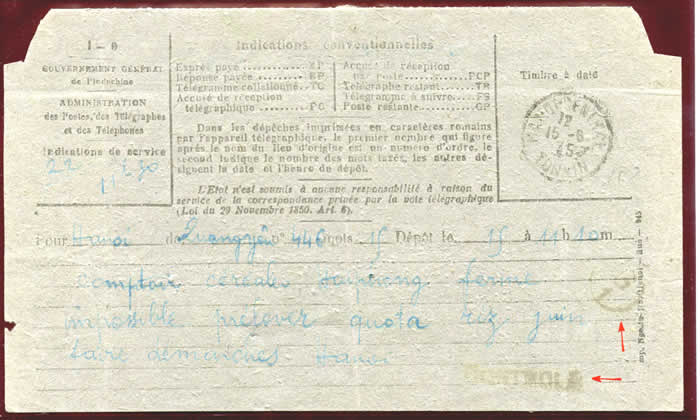 I - 0
GOUVERNEMENT GÉNÉRAL
de l'Indochine
ADMINISTRATION
des Postes, des Télégraphes
et des Téléphones
Indications de service
Indications conventionnelles
Exprès payé XP
Réponse payée RP
Télégramme collationné TC
Accusé de réception
télégraphique PC
Accusé de réception
par poste PCP
Télégraphe restant TR
Télégramme à suivre FS
Poste restante GP
Dans les dépêches imprimées en caractères romains
par l'appareil télégraphique, le premier nombre qui figure
après le nom du lieu d'origine est un numéro d'ordre, le
second indique le nombre des mots taxés, les autres dé-
signent la date et l'heure de dépôt.
L'Etat n'est soumis à aucune responsabilité à raison du
service de la correspondance privée par la voie télégraphique
(Loi du 29 Novembre 1850. Art. 6)
Timbre à date
HANOI-CENTRAL
12
15-6
45
TONKIN
Pour Hanoi de Quangyên n° 446 mots 15 Dépôt le 15 à 11 h 10 m
comptoir céréales
impossible prélever quota riz juin
faire démarches Hanoi